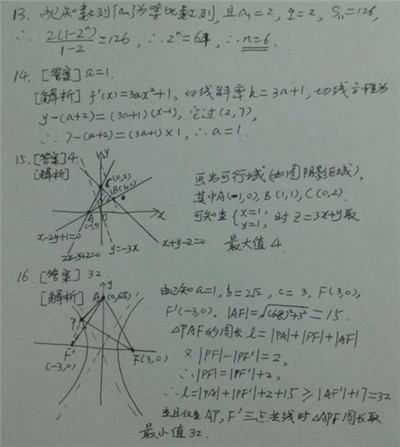 13. 由已知数列{an}为等比数列, 且a1=2, q=2, Sn=126,
∴ 2(1-2^n)/(1-2)=126, ∴2^n=64, ∴n=6.
14. [答案] a=1.
[解析] f'(x)=3ax²+1, 切线斜率k=3a+1, 切线方程为
y-(a+2)=(3a+1)(x-1), 它过(2,7),
∴7-(a+2)=(3a+1)×1, ∴a=1.
15. [答案] 4
[解析]
y
C(0,2)
B(1,1)
A
(-1,0)
0
x
x-2y+1=0
2x-y+2=0
y=-3x
x+y-2=0
画出可行域(如图阴影区域),
其中A(-1,0), B(1,1), C(0,2).
可知当{x=1, y=1, 时 z=3x+y取
最大值4.
16. [答案] 32
[解析]
y
A
P
F'
(-3,0)
F(3,0)
x
由已知a=1, b=2√2, c=3, F(3,0),
F'(-3,0). |AF|=√((6√6)²+3²)=15.
△PAF的周长l=|PA|+|PF|+|AF|
又|PF|-|PF'|=2,
∴|PF|=|PF'|+2,
∴l=|PA|+|PF'|+2+15≥|AF'|+17=32
当且仅当A,P,F'三点共线时△APF周长取
最小值32.